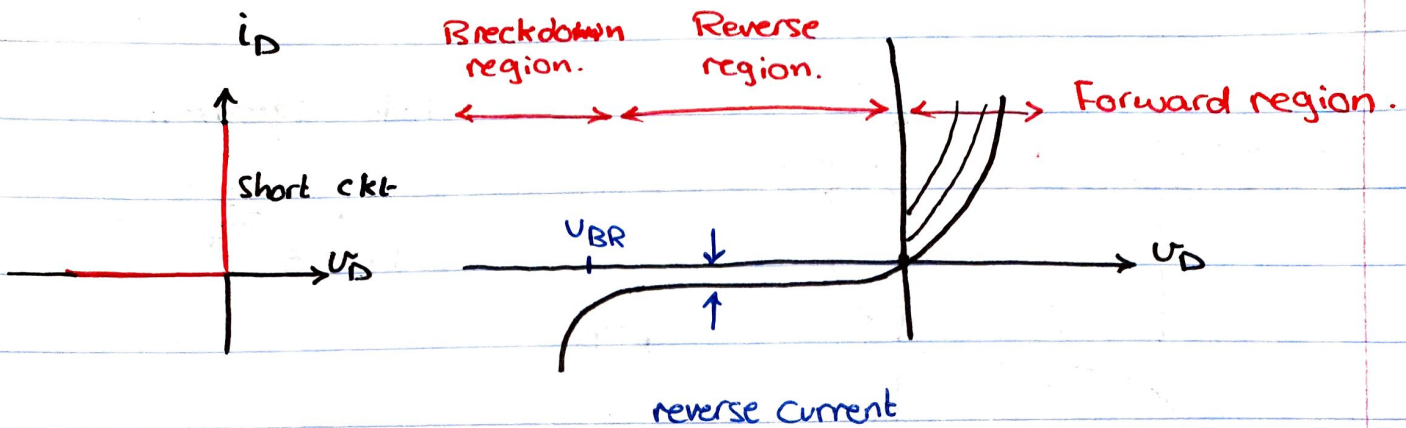 iD
Breckdown
region.
Reverse
region.
Forward region.
Short ckt
vD
vBR
vD
reverse current